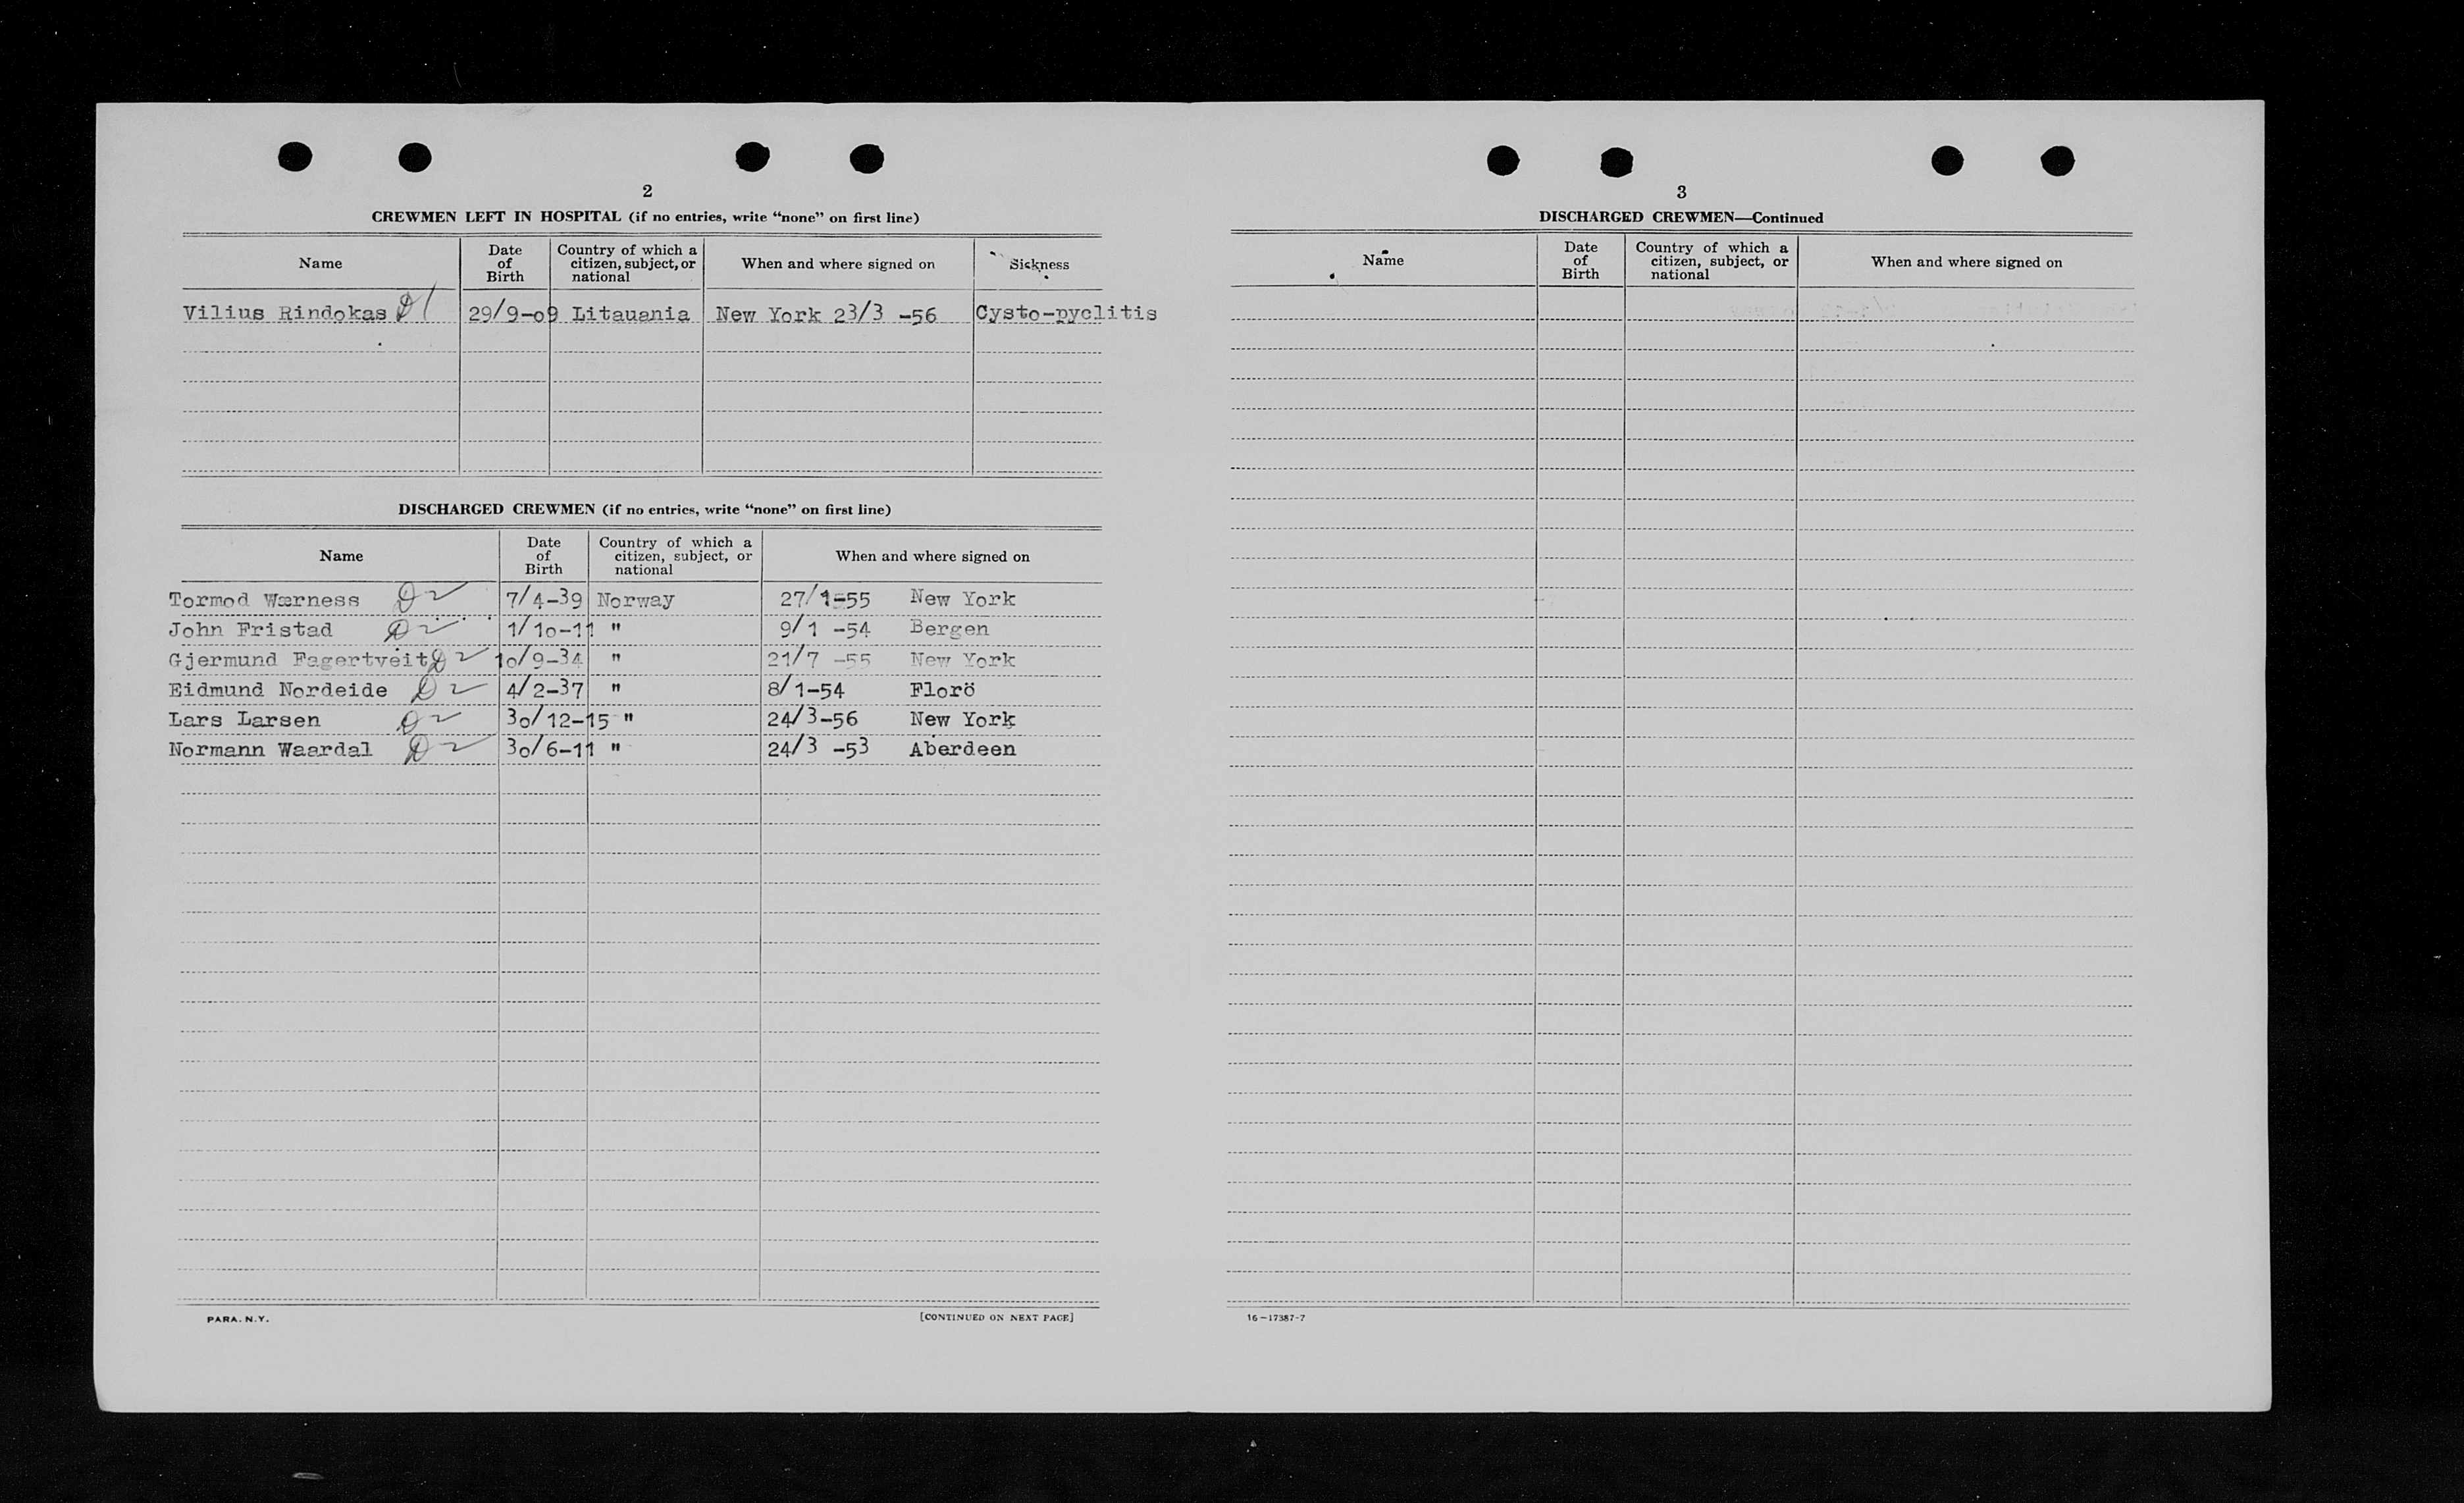 2
CREWMEN LEFT IN HOSPITAL (if no entries, write “none” on first line)
Name Date of Birth Country of which a citizen, subject, or national When and where signed on Sickness
Vilius Rindokas D1 29/9-09 Litauania New York 23/3 -56 Cysto-pyclitis
DISCHARGED CREWMEN (if no entries, write “none” on first line)
Name Date of Birth Country of which a citizen, subject, or national When and where signed on
Tormod Wærness D2 7/4-39 Norway 27/1-55 New York
John Fristad D2 1/10-11 " 9/1 -54 Bergen
Gjermund Fagertveit D2 10/9-34 " 21/7 -55 New York
Eidmund Nordeide D2 4/2-37 " 8/1-54 Florö
Lars Larsen D2 30/12-15 " 24/3-56 New York
Normann Waardal D2 30/6-11 " 24/3 -53 Aberdeen
PARA. N.Y. [CONTINUED ON NEXT PAGE]
3
DISCHARGED CREWMEN—Continued
Name Date of Birth Country of which a citizen, subject, or national When and where signed on
16—17387-7